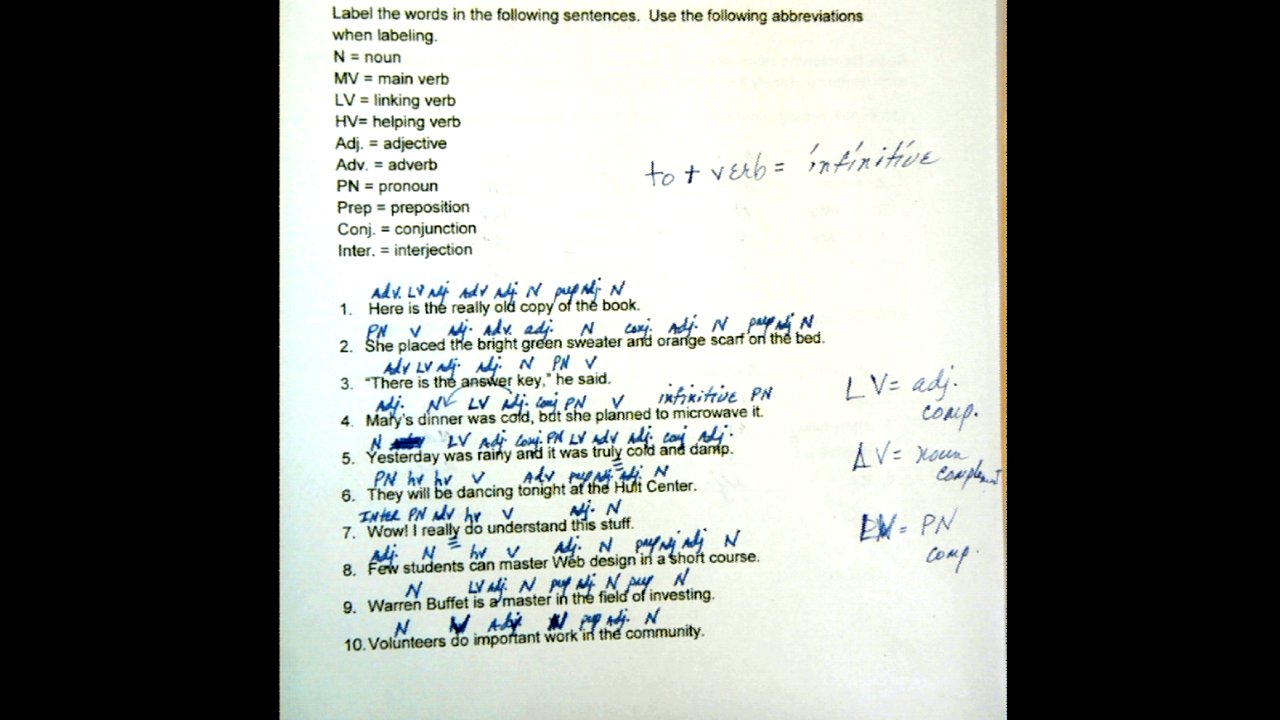 Label the words in the following sentences. Use the following abbreviations
when labeling.
N = noun
MV = main verb
LV = linking verb
HV= helping verb
Adj. = adjective
Adv. = adverb
PN = pronoun
Prep = preposition
Conj. = conjunction
Inter. = interjection
to + verb = infinitive
Adv. LV adj. Adv Adj. N prep adj. N
1. Here is the really old copy of the book.
PN V adj. adv. adj. N conj. Adj. N prep adj N
2. She placed the bright green sweater and orange scarf on the bed.
Adv LV adj. adj. N PN V
3. "There is the answer key," he said.
Adj. N LV Adj. conj PN V infinitive PN
4. Mary's dinner was cold, but she planned to microwave it.
LV = adj. comp.
N LV Adj conj. PN LV Adv Adj. conj Adj.
5. Yesterday was rainy and it was truly cold and damp.
LV = noun complement
PN hv hv V Adv prep adj adj N
6. They will be dancing tonight at the Hult Center.
Inter PN adv hv V adj. N
7. Wow! I really do understand this stuff.
LV = PN comp.
Adj. N hv V Adj. N prep adj adj N
8. Few students can master Web design in a short course.
N LV adj. N prep adj N prep N
9. Warren Buffet is a master in the field of investing.
N V Adj N prep adj. N
10. Volunteers do important work in the community.